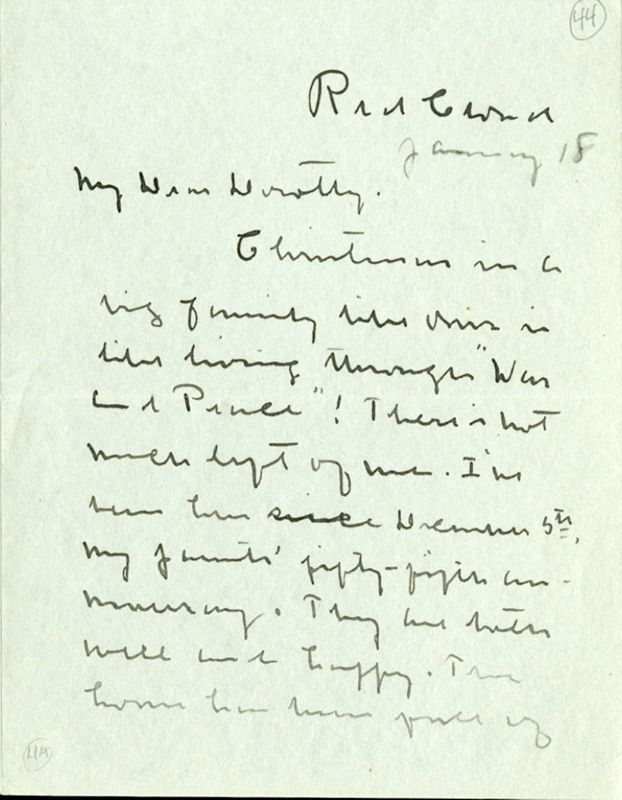 44
Red Cloud
January 18
My Dear Dorothy.
Christmas in a
big family like ours is
like living through "War
and Peace"! There is not
much left of me. I've
been here since December 5th,
my parents' fifty-fifth an-
niversary. They are both
well and happy. The
house has been full of
44